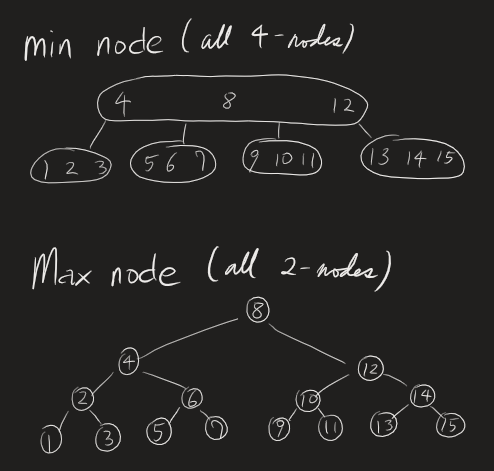 min node (all 4-nodes)
4 8 12
1 2 3 5 6 7 9 10 11 13 14 15
Max node (all 2-nodes)
8
4 12
2 6 10 14
1 3 5 7 9 11 13 15